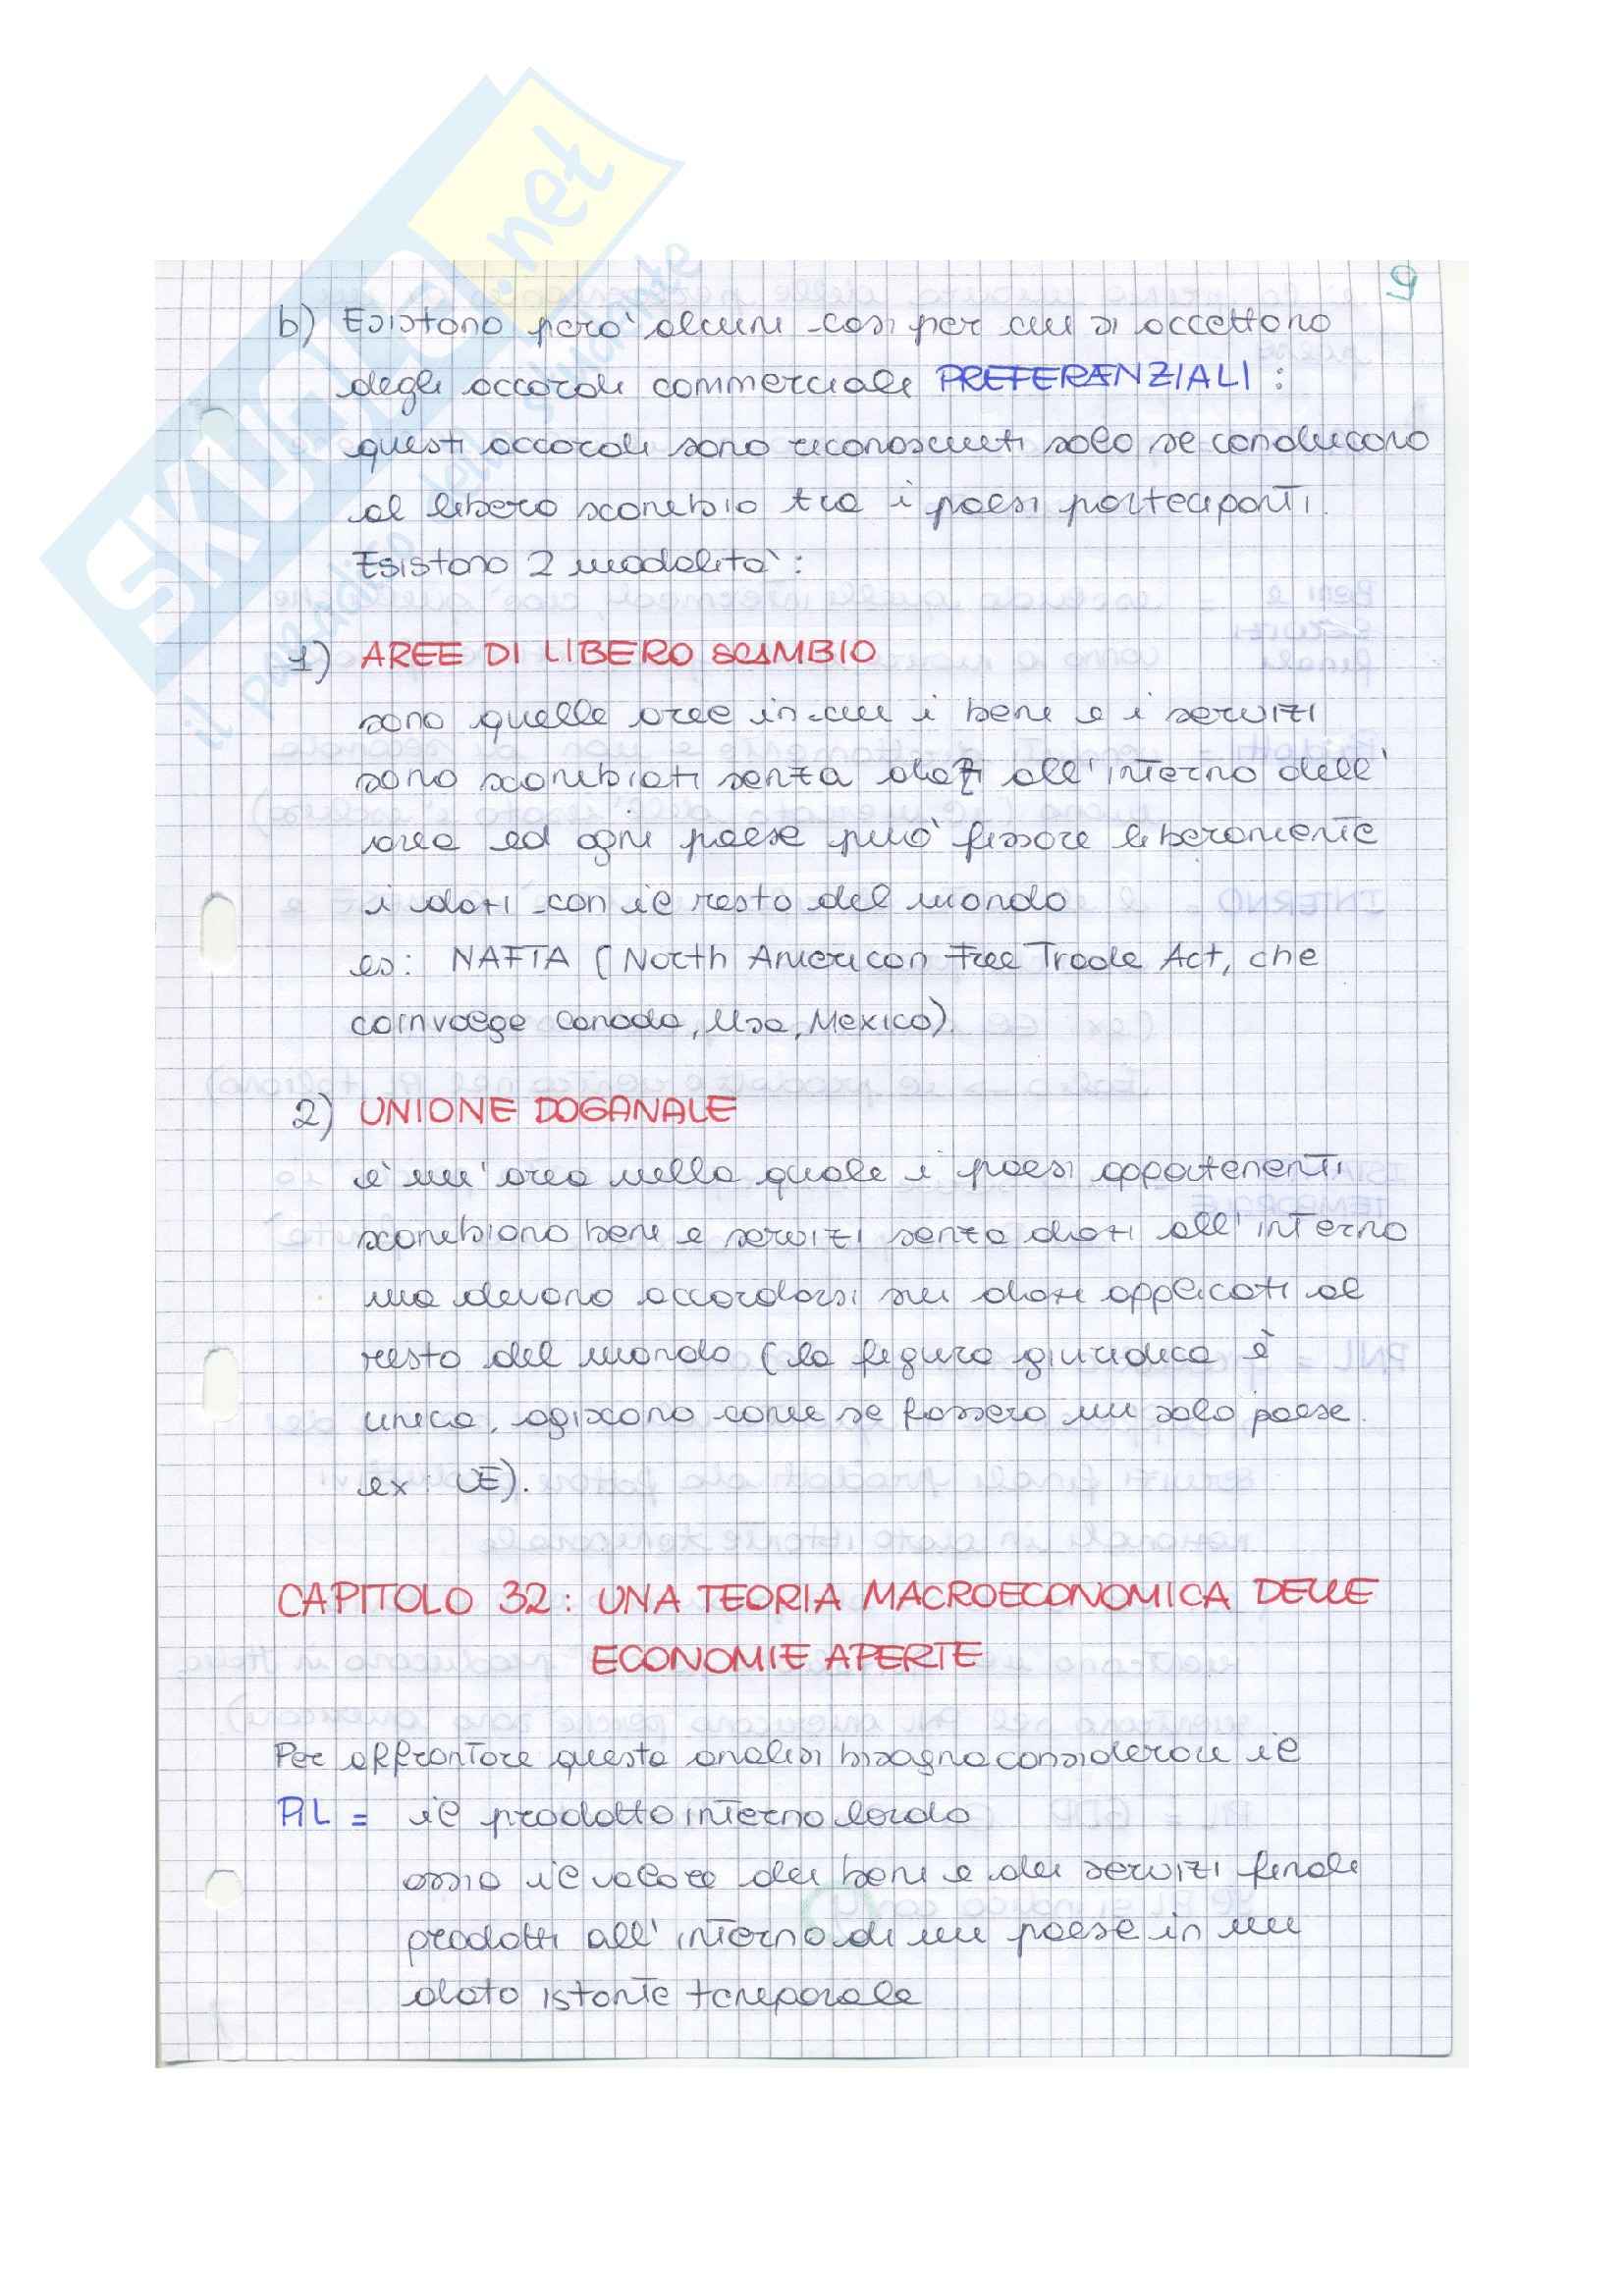 SKUOLA.net
il paradiso dello studente
9
b) Esistono però alcuni casi per cui si accettano
degli accordi commerciali PREFERENZIALI :
questi accordi sono riconosciuti solo se conducono
al libero scambio tra i paesi partecipanti.
Esistono 2 modalità :
1) AREE DI LIBERO SCAMBIO
sono quelle aree in cui i beni e i servizi
sono scambiati senza dazi all'interno dell'
area ed ogni paese può fissare liberamente
i dazi con il resto del mondo
es: NAFTA (North American Free Trade Act, che
coinvolge Canada, Usa, Mexico).
2) UNIONE DOGANALE
è un'area nella quale i paesi appartenenti
scambiano beni e servizi senza dazi all'interno
ma devono accordarsi sui dazi applicati al
resto del mondo (la figura giuridica è
unica, agiscono come se fossero un solo paese.
ex: UE).
CAPITOLO 32 : UNA TEORIA MACROECONOMICA DELLE
ECONOMIE APERTE
Per affrontare questa analisi bisogna considerare il
PIL = il prodotto interno lordo
ossia il valore dei beni e dei servizi finali
prodotti all'interno di un paese in un
dato istante temporale